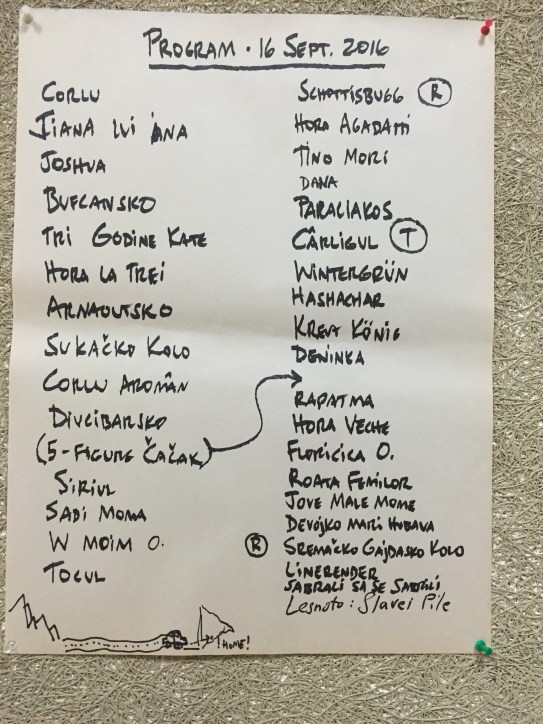 PROGRAM · 16 SEPT. 2016
CORLU
IIANA LUI ANA
JOSHUA
BUFCANSKO
TRI GODINE KATE
HORA LA TREI
ARNAOUTSKO
SUKAČKO KOLO
CORLU AROMÂN
DIVCIBARSKO
(5-FIGURE ČAČAK)
SIRIUL
SADI MOMA
W MOIM O.
TOCUL
SCHOTTISBUGG R
HORA AGADATI
TINO MORI
DANA
PARALIAKOS
CÂRLIGUL T
WINTERGRÜN
HASHACHAR
KREUZ KÖNIG
DENINKA
RAPATMA
HORA VECHE
FLORICICA O.
ROATA FEMILOR
JOVE MALE MOME
DEVOJKO MARI HUBAVA
R SREMAČKO GAJDASKO KOLO
LINERENDER
SABRALI SA SE SABRALI
Lesnoto: Slavei Pile
! HOME!